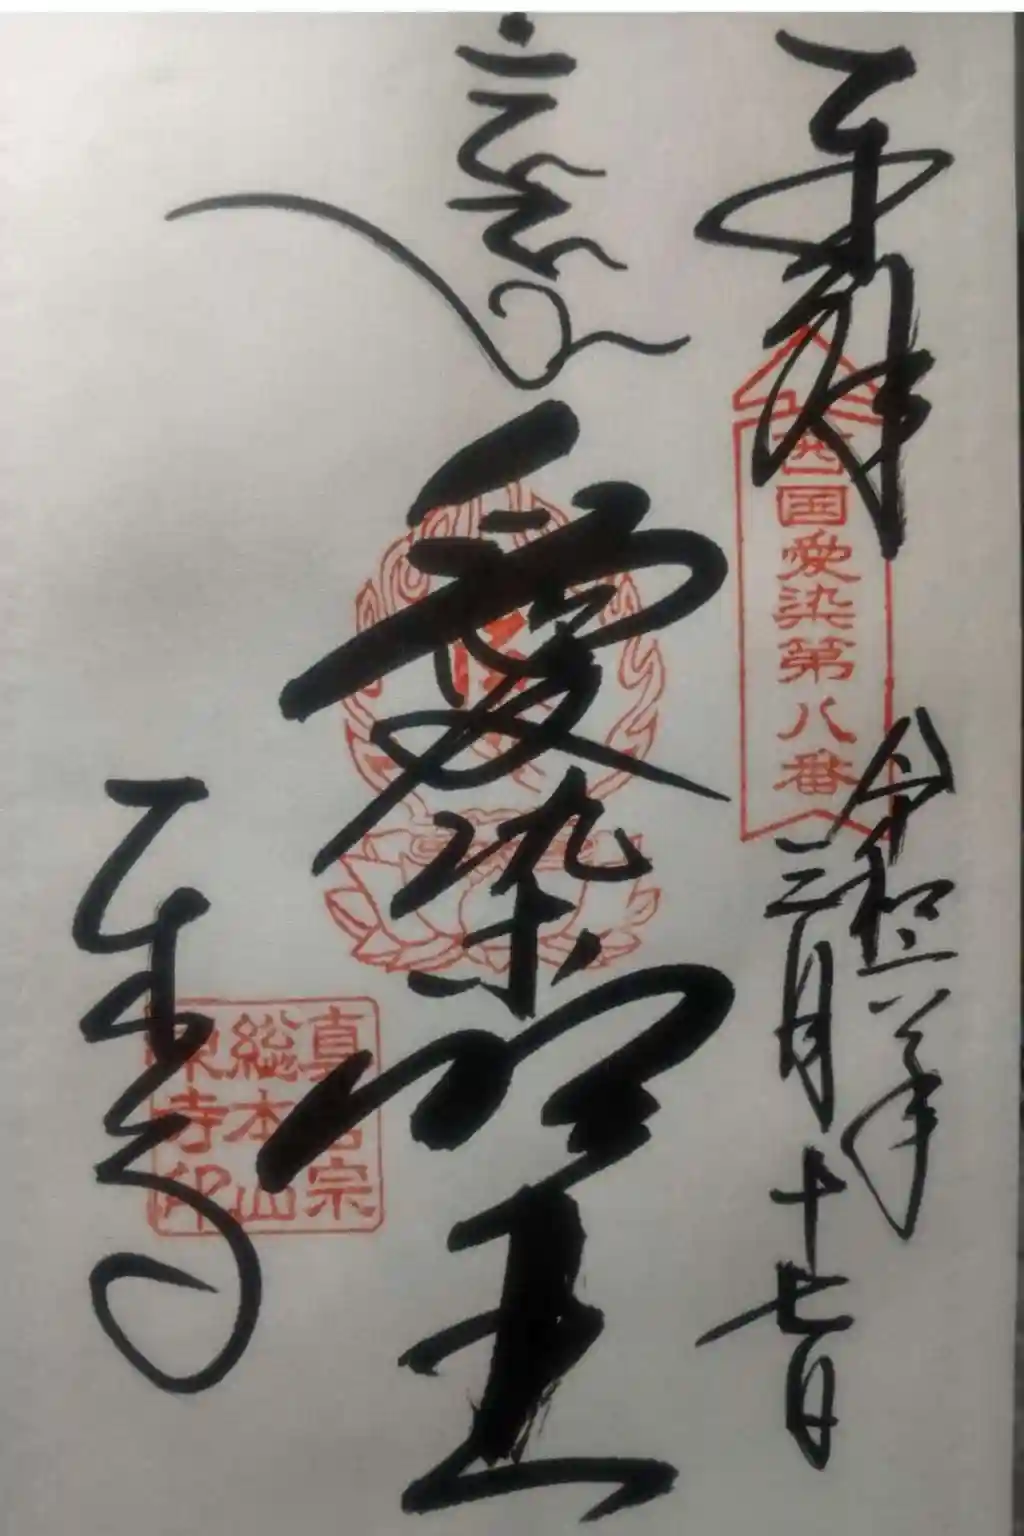 奉拝
西国愛染第八番
令和二年
三月十七日
愛染明王
真言宗
総本山
東寺印
東寺